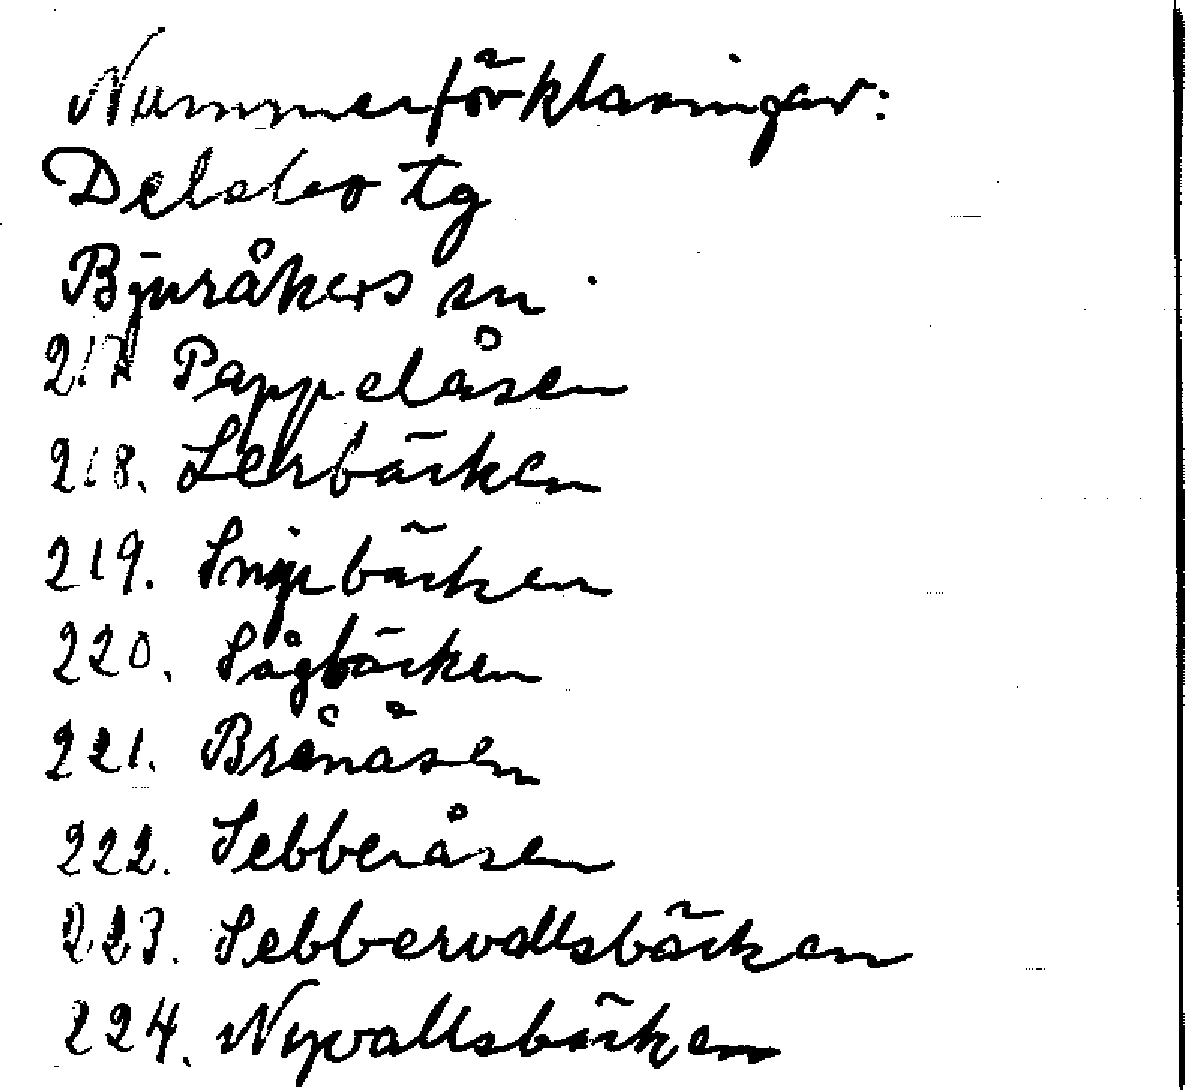 Nummerförklaringar:
Delsbo tg
Bjuråkers sn
217. Pappelåsen
218. Lerbäcken
219. Snipbäcken
220. Sågbäcken
221. Brånåsen
222. Sebberåsen
223. Sebbervallsbäcken
224. Nyvallsbäcken